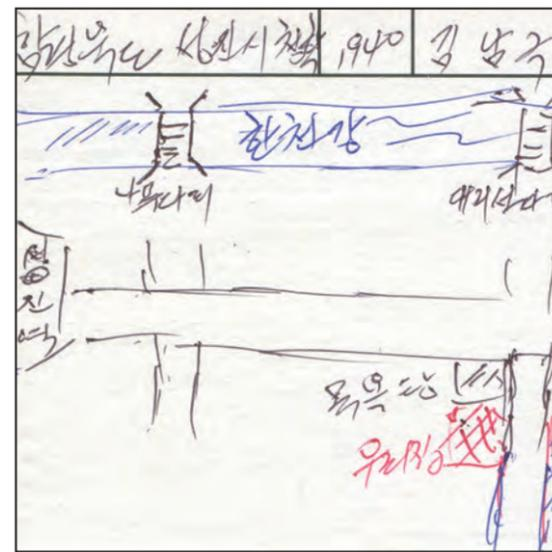 함경북도 성진시 1940 김남구
한천강
나무다리 대리석다
진역
목욕탕
우리집